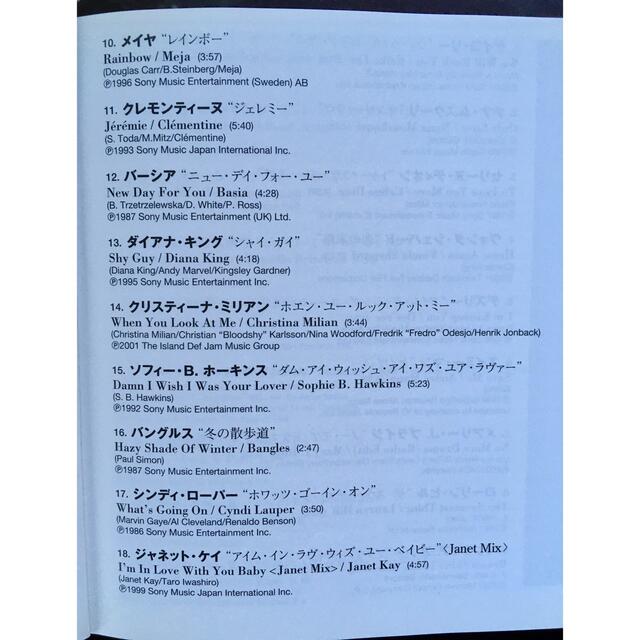 10. メイヤ “レインボー”
Rainbow / Meja (3:57)
(Douglas Carr/B.Steinberg/Meja)
Ⓟ1996 Sony Music Entertainment (Sweden) AB
11. クレモンティーヌ “ジェレミー”
Jérémie / Clémentine (5:40)
(S. Toda/M.Mitz/Clémentine)
Ⓟ1993 Sony Music Japan International Inc.
12. バーシア “ニュー・デイ・フォー・ユー”
New Day For You / Basia (4:28)
(B. Trzetrzelewska/D. White/P. Ross)
Ⓟ1987 Sony Music Entertainment (UK) Ltd.
13. ダイアナ・キング “シャイ・ガイ”
Shy Guy / Diana King (4:18)
(Diana King/Andy Marvel/Kingsley Gardner)
Ⓟ1995 Sony Music Entertainment Inc.
14. クリスティーナ・ミリアン “ホエン・ユー・ルック・アット・ミー”
When You Look At Me / Christina Milian (3:44)
(Christina Milian/Christian “Bloodshy” Karlsson/Nina Woodford/Fredrik “Fredro” Odesjo/Henrik Jonback)
Ⓟ2001 The Island Def Jam Music Group
15. ソフィー・B. ホーキンス “ダム・アイ・ウィッシュ・アイ・ワズ・ユア・ラヴァー”
Damn I Wish I Was Your Lover / Sophie B. Hawkins (5:23)
(S. B. Hawkins)
Ⓟ1992 Sony Music Entertainment Inc.
16. バングルス “冬の散歩道”
Hazy Shade Of Winter / Bangles (2:47)
(Paul Simon)
Ⓟ1987 Sony Music Entertainment Inc.
17. シンディ・ローパー “ホワッツ・ゴーイン・オン”
What's Going On / Cyndi Lauper (3:50)
(Marvin Gaye/Al Cleveland/Renaldo Benson)
Ⓟ1986 Sony Music Entertainment Inc.
18. ジャネット・ケイ “アイム・イン・ラヴ・ウィズ・ユー・ベイビー”〈Janet Mix〉
I'm In Love With You Baby <Janet Mix> / Janet Kay (4:57)
(Janet Kay/Taro Iwashiro)
Ⓟ1999 Sony Music Japan International Inc.